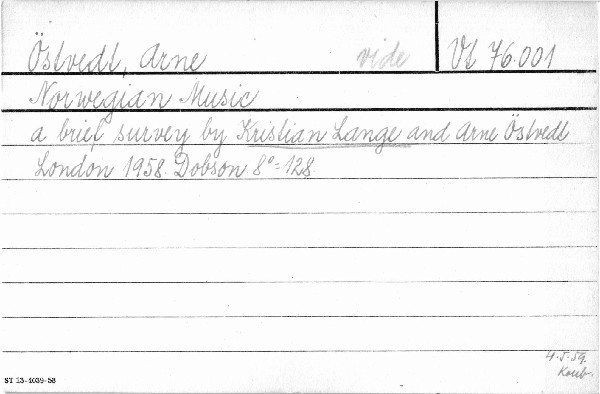 Östvedt, Arne vide Vt 76.001
Norwegian Music
a brief survey by Kristian Lange and Arne Östvedt
London 1958. Dobson. 8°=128
4.5.59.
Koub.
ST 13-4039-58